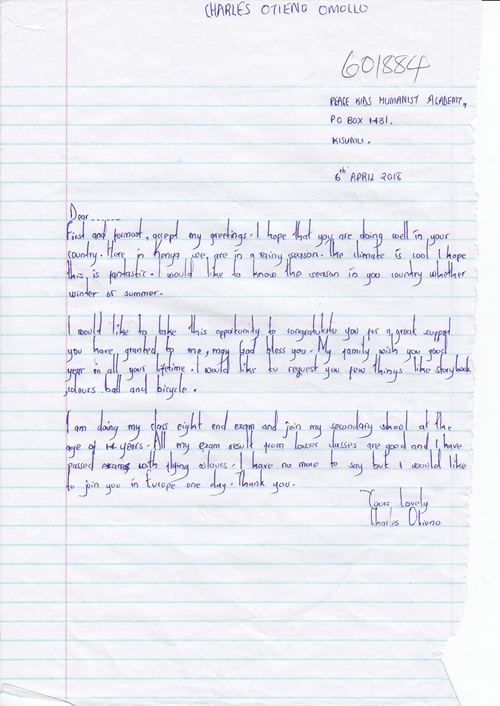 CHARLES OTIENO OMOLLO
601884
PEACE KIDS HUMANIST ACADEMY,
PO BOX 1431,
KISUMU.
6th APRIL 2018
Dear ........
First and formost, accept my greetings. I hope that you are doing well in your
country. Here in Kenya we, are in a rainy season. The climate is cool I hope
this, is fantastic. I would like to know the season in you country whether
winter or summer.
I would like to take this opportunity to congratulate you for a great support
you have granted to me, may God bless you. My family wish you good
year in all your lifetime. I would like to request you few things like storybook
,colours ball and bicycle.
I am doing my class eight end exam and join my secondary school at the
age of 14 years. All my exam result from lower classes are good and I have
passed exams with flying colours. I have no more to say but I would like
to join you in Europe one day. Thank you.
Yours Lovely
Charles Otieno